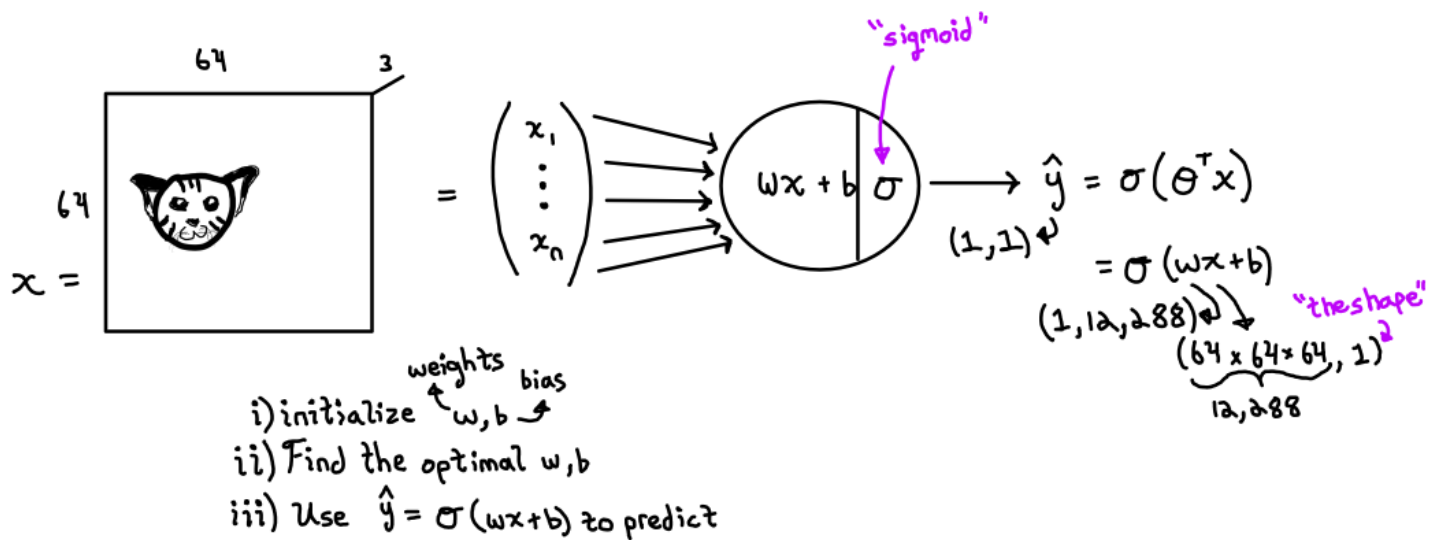 "sigmoid"
64
3
64
x =
=
x₁
⋮
xₙ
wx + b σ
ŷ = σ(θᵀx)
(1,1)
= σ(wx+b)
(1,12,288)
"the shape"
(64 × 64 × 64, , 1)
12,288
weights
bias
i) initialize w,b
ii) Find the optimal w,b
iii) Use ŷ = σ(wx+b) to predict